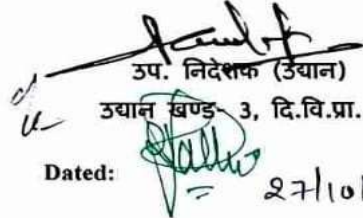 उप. निदेशक (उद्यान)
उद्यान खण्ड- 3, दि.वि.प्रा.
Dated:
27/10/